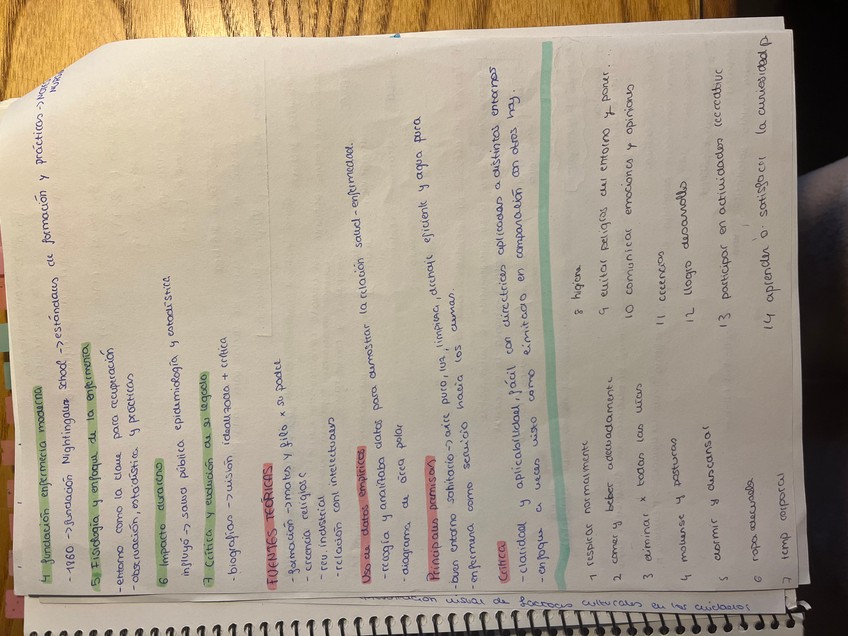 4 fundación enfermería moderna
- 1860 → fundación Nightingale school → estándares de formación y prácticas →
5 Fisiología y enfoque de la enfermería
- entorno como la clave para recuperación
- observación, estadística y prácticas
6 Impacto duradero
influyó → salud pública epidemiología y estadística
7 Crítica y evolución de su legado
- biografías → visión idealizada + crítica
FUENTES TEÓRICAS
- formación → mates y filo x su padre
- creencia religiosa
- rev. industrial
- relación con intelectuales
Uso de datos empíricos
- recogía y analizaba datos para demostrar la relación salud-enfermedad.
- diagrama de área polar
Principales premisas
- buen entorno sanitario → aire puro, luz, limpieza, drenaje eficiente y agua pura
- enfermera como servicio hacia los demás.
Crítica
- claridad y aplicabilidad, fácil con directrices aplicadas a distintos entornos
- enfoque a veces visto como limitado en comparación con otros hoy.
1 respirar normalmente
2 comer y beber adecuadamente
3 eliminar x todas las vías
4 moverse y posturas
5 dormir y descansar
6 ropa adecuada
7 temp corporal
8 higiene
9 evitar peligros del entorno y poner...
10 comunicar emociones y opiniones
11 creencias
12 llogio desarrollo
13 participar en actividades recreativc
14 aprender o satisfacer la curiosidad p.
visual de factores culturales en los cuidados